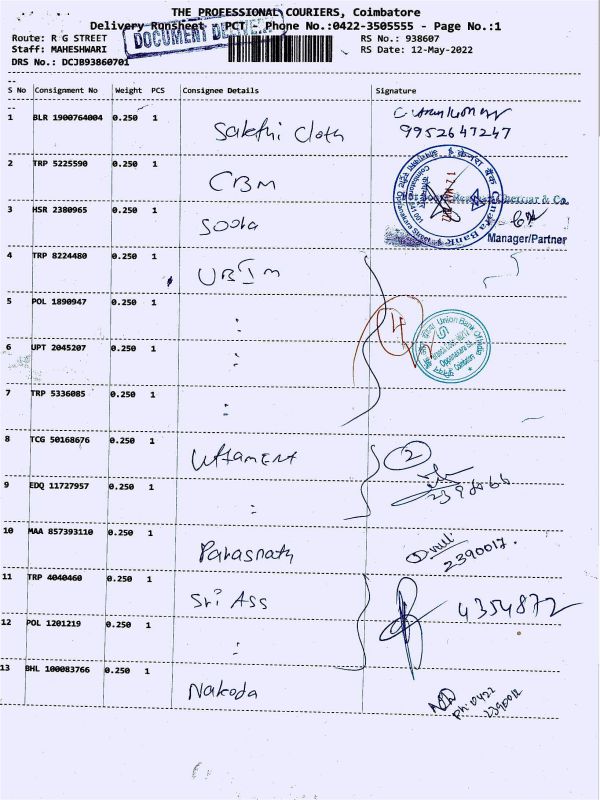 THE PROFESSIONAL COURIERS, Coimbatore
Delivery Runsheet - PCT - Phone No.:0422-3505555 - Page No.:1
DOCUMENT
Route: R G STREET
RS No.: 938607
Staff: MAHESHWARI
RS Date: 12-May-2022
DRS No.: DCJB93860701
S No Consignment No Weight PCS Consignee Details Signature
1 BLR 1900764004 0.250 1 Sakthi Cloth
9952647247
2 TRP 5225590 0.250 1 CBM
3 HSR 2380965 0.250 1
Canara Bank
& Co.
Manager/Partner
4 TRP 8224480 0.250 1 UBIM
5 POL 1890947 0.250 1 "
4
Union Bank Of India
Coimbatore
6 UPT 2045207 0.250 1 "
7 TRP 5336085 0.250 1 "
8 TCG 50168676 0.250 1 2
9 EDQ 11727957 0.250 1 "
10 MAA 857393110 0.250 1 Parasnath
2390017.
11 TRP 4040460 0.250 1 Sri Ass
4354872
12 POL 1201219 0.250 1 "
13 BHL 100083766 0.250 1 Nakoda
Ph: 0422
2390012